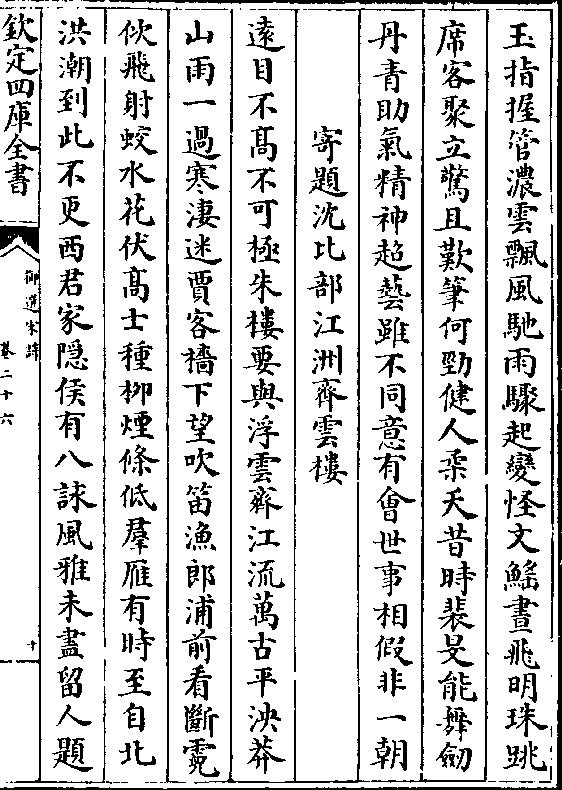 玉指握管濃雲飄風馳雨驟起變怪文鰩晝飛明珠跳
席客聚立驚且歎筆何勁健人柔夭昔時裴旻能舞劒
丹青助氣精神超藝雖不同意有會世事相假非一朝
寄題沈比部江洲齊雲樓
遠目不髙不可極朱樓要與浮雲齊江流萬古平泱莽
山雨一過寒淒迷賈客檣下望吹笛漁郎浦前看斷霓
佽飛射蛟水花伏髙士種柳煙條低羣雁有時至自北
洪潮到此不更西君家隠侯有八詠風雅未盡留人題
欽定四庫全書
御選宋詩
卷二十六
十